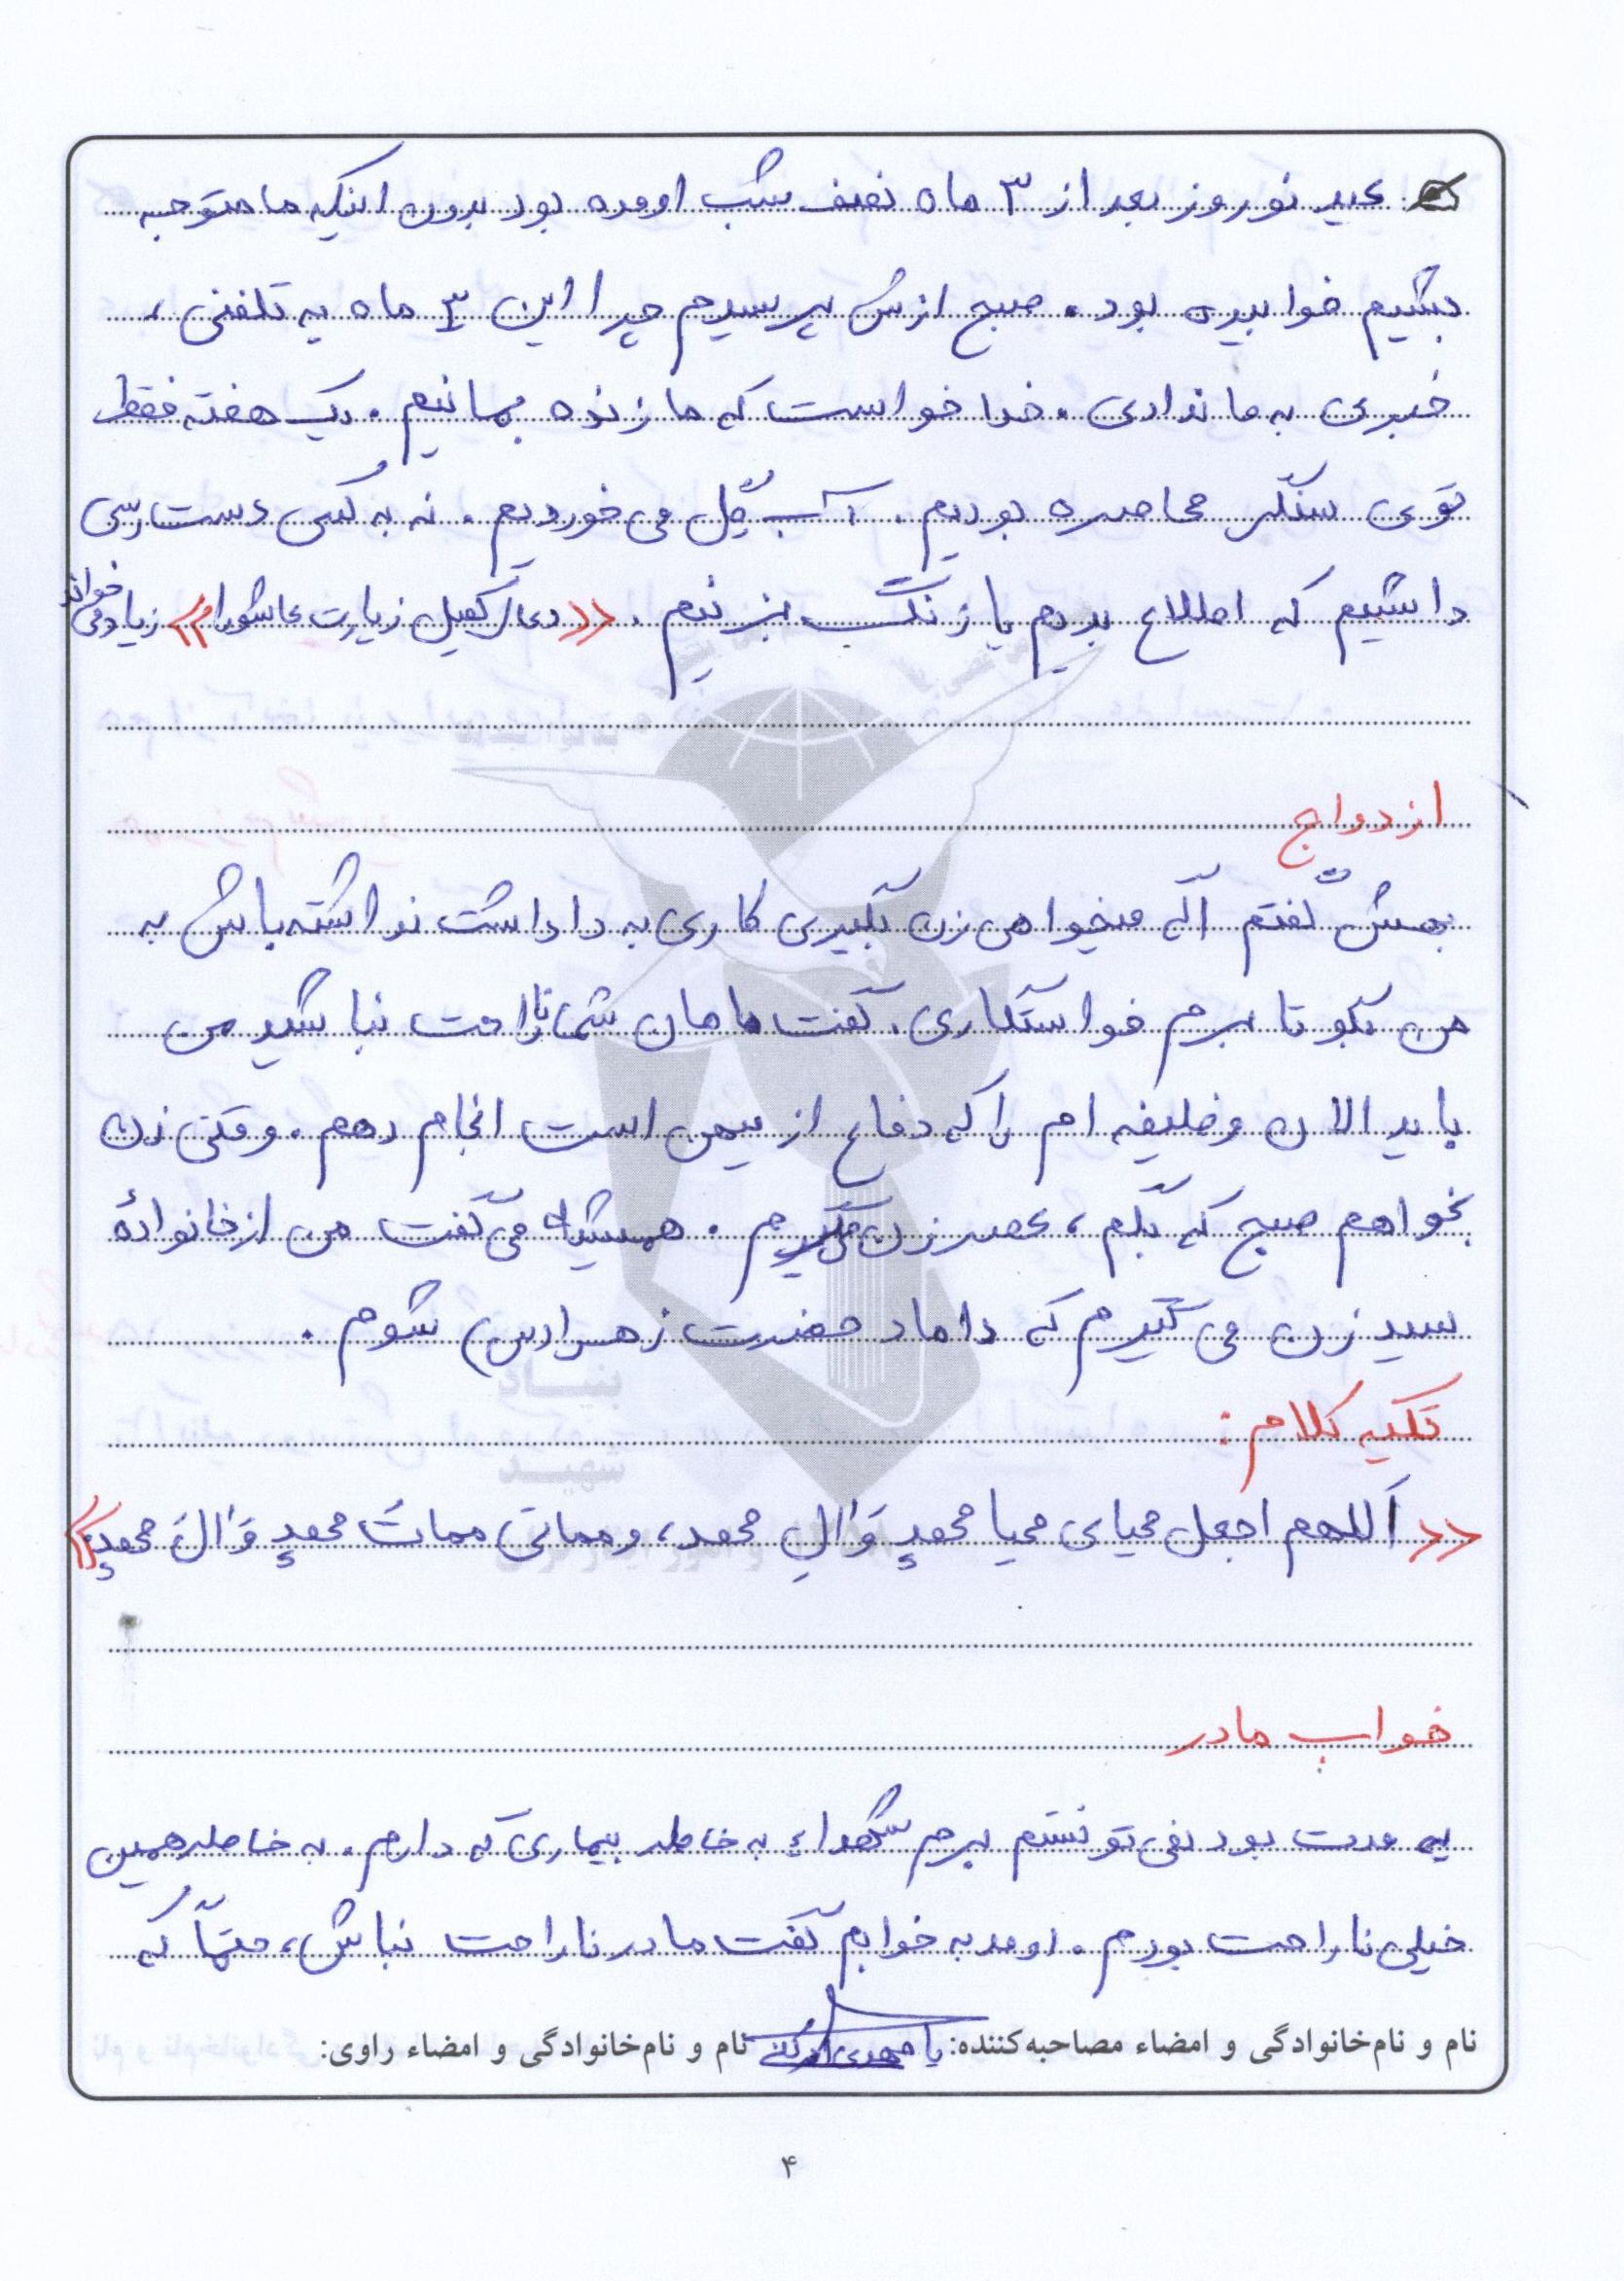 عید نوروز بعد از ۳ ماه نصف شب اومده بود بدون اینکه ما متوجه
بشیم خوابیده بود. صبح ازش پرسیدم چرا این ۳ ماه یه تلفنی،
خبری به ما ندادی. خدا خواست که ما زنده بمانیم. یک هفته فقط
توی سنگر محاصره بودیم. آب گِل می خوردیم. نه به کسی دست رسی
داشتیم که اطلاع بدیم یا زنگ بزنیم. «دعای کمیل زیارت عاشورا» زیاد می خواند
ازدواج
بهش گفتم اگه میخواهی زن بگیری کاری به داداشت نداشته باش به
من بگو تا برم خواستگاری. گفت مامان شما ناراحت نباشید من
باید الان وظیفه ام را که دفاع از میهن است انجام دهم. وقتی زن
بخواهم صبح که بگم، عصر زن می گیرم. همیشه می گفت من از خانوادهٔ
سید زن می گیرم که داماد حضرت زهرا(س) شوم.
تکیه کلام:
«اَللهم اجعل محیای محیا محمدٍ وَ الِ محمد، و مماتی مماتَ محمدٍ وَ الَ محمدٍ»
خواب مادر
یه مدت بود نمی تونستم برم شهداء به خاطر بیماری که دارم. به خاطر همین
خیلی ناراحت بودم. اومد به خوابم گفت مادر ناراحت نباش، حتماً که
نام و نام‌خانوادگی و امضاء مصاحبه‌کننده: نام و نام‌خانوادگی و امضاء راوی:
۴